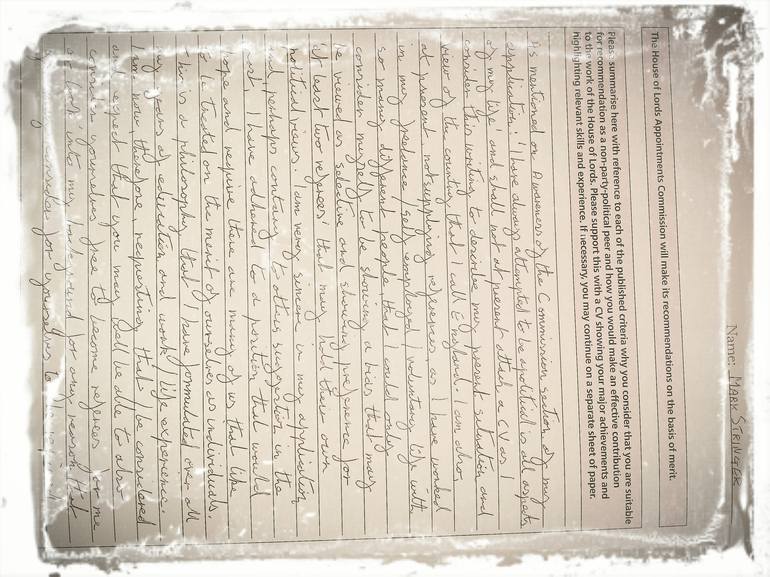 Name: MARK STRINGER
The House of Lords Appointments Commission will make its recommendations on the basis of merit.
Please summarise here with reference to each of the published criteria why you consider that you are suitable
for recommendation as a non-party-political peer and how you would make an effective contribution
to the work of the House of Lords. Please support this with a CV showing your major achievements and
highlighting relevant skills and experience. If necessary, you may continue on a separate sheet of paper.
As mentioned on Awareness of the Commission section of my
application. 'I have always attempted to be apolitical in all aspects
of my life' and shall not at present attach a CV as I
consider this writing to describe my present situation and
view of the country that I call England. I am also,
at present not supplying referees as I have worked
in my freelance / self employed / voluntary life with
so many different people that would only
consider myself to be showing a bias that may
be viewed as selective and showing preference for
'at least two referees' that may hold their own
political views. I am very sincere in my application
and perhaps contrary to others suggestion in the
past I have adhered to a position that would
hope and require there are many of us that like
to be treated on the merit of ourselves as individuals.
This is a philosophy that I have formulated over all
my years of education and work / life experience.
I am now, therefore, requesting that I be considered
and expect that you may well be able to also
consider yourselves free to become referees for me
or look into my background for any reason that
consider for yourselves to